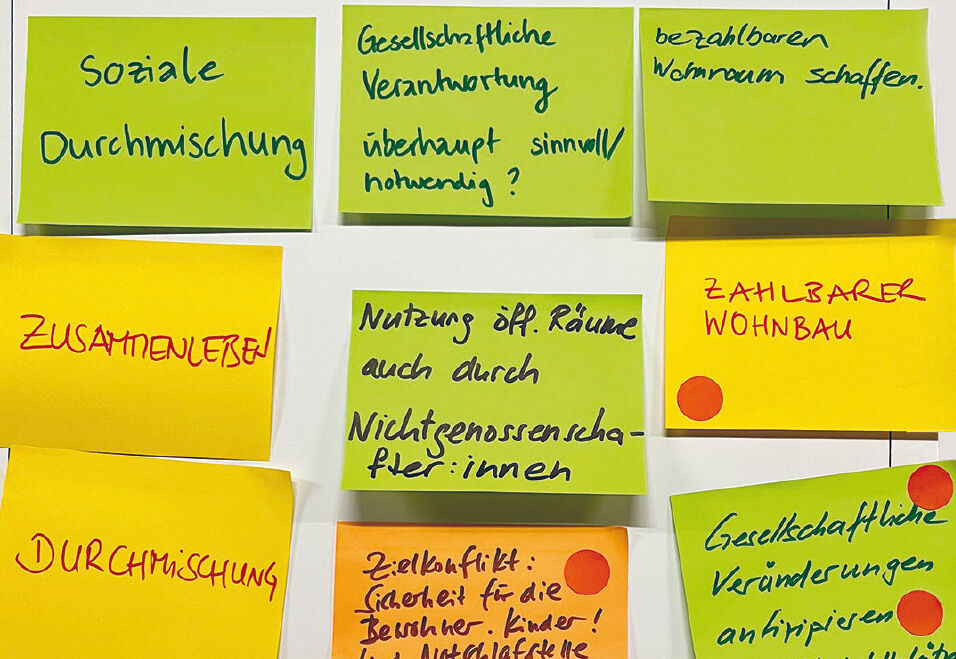 Soziale
Durchmischung
Gesellschaftliche
Verantwortung
überhaupt sinnvoll/
notwendig?
bezahlbaren
Wohnraum schaffen.
ZUSAMMENLEBEN
Nutzung öff. Räume
auch durch
Nichtgenossenscha-
fter:innen
ZAHLBARER
WOHNBAU
DURCHMISCHUNG
Zielkonflikt:
Sicherheit für die
Bewohner. Kinder!
und Notschlafstelle
Gesellschaftliche
Veränderungen
antizipieren